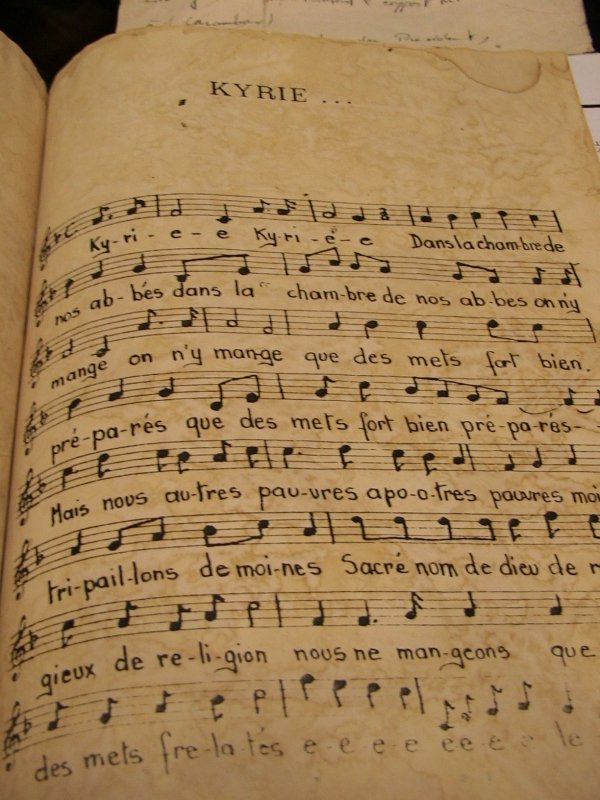 KYRIE ...
Ky-ri - e - e Ky-ri - ë - e Dans la cham-bre de
nos ab-bés dans la cham-bre de nos ab-bes on n'y
mange on n'y man-ge que des mets fort bien.
pré-pa-rés que des mets fort bien pré-pa-rés-
Mais nous au-tres pau-vres apo-o-tres pauvres moi
tri-pail-lons de moi-nes Sacré nom de dieu de r
gieux de re-li-gion nous ne man-geons que
des mets fre-la-tés e-e-e e ee-e e le